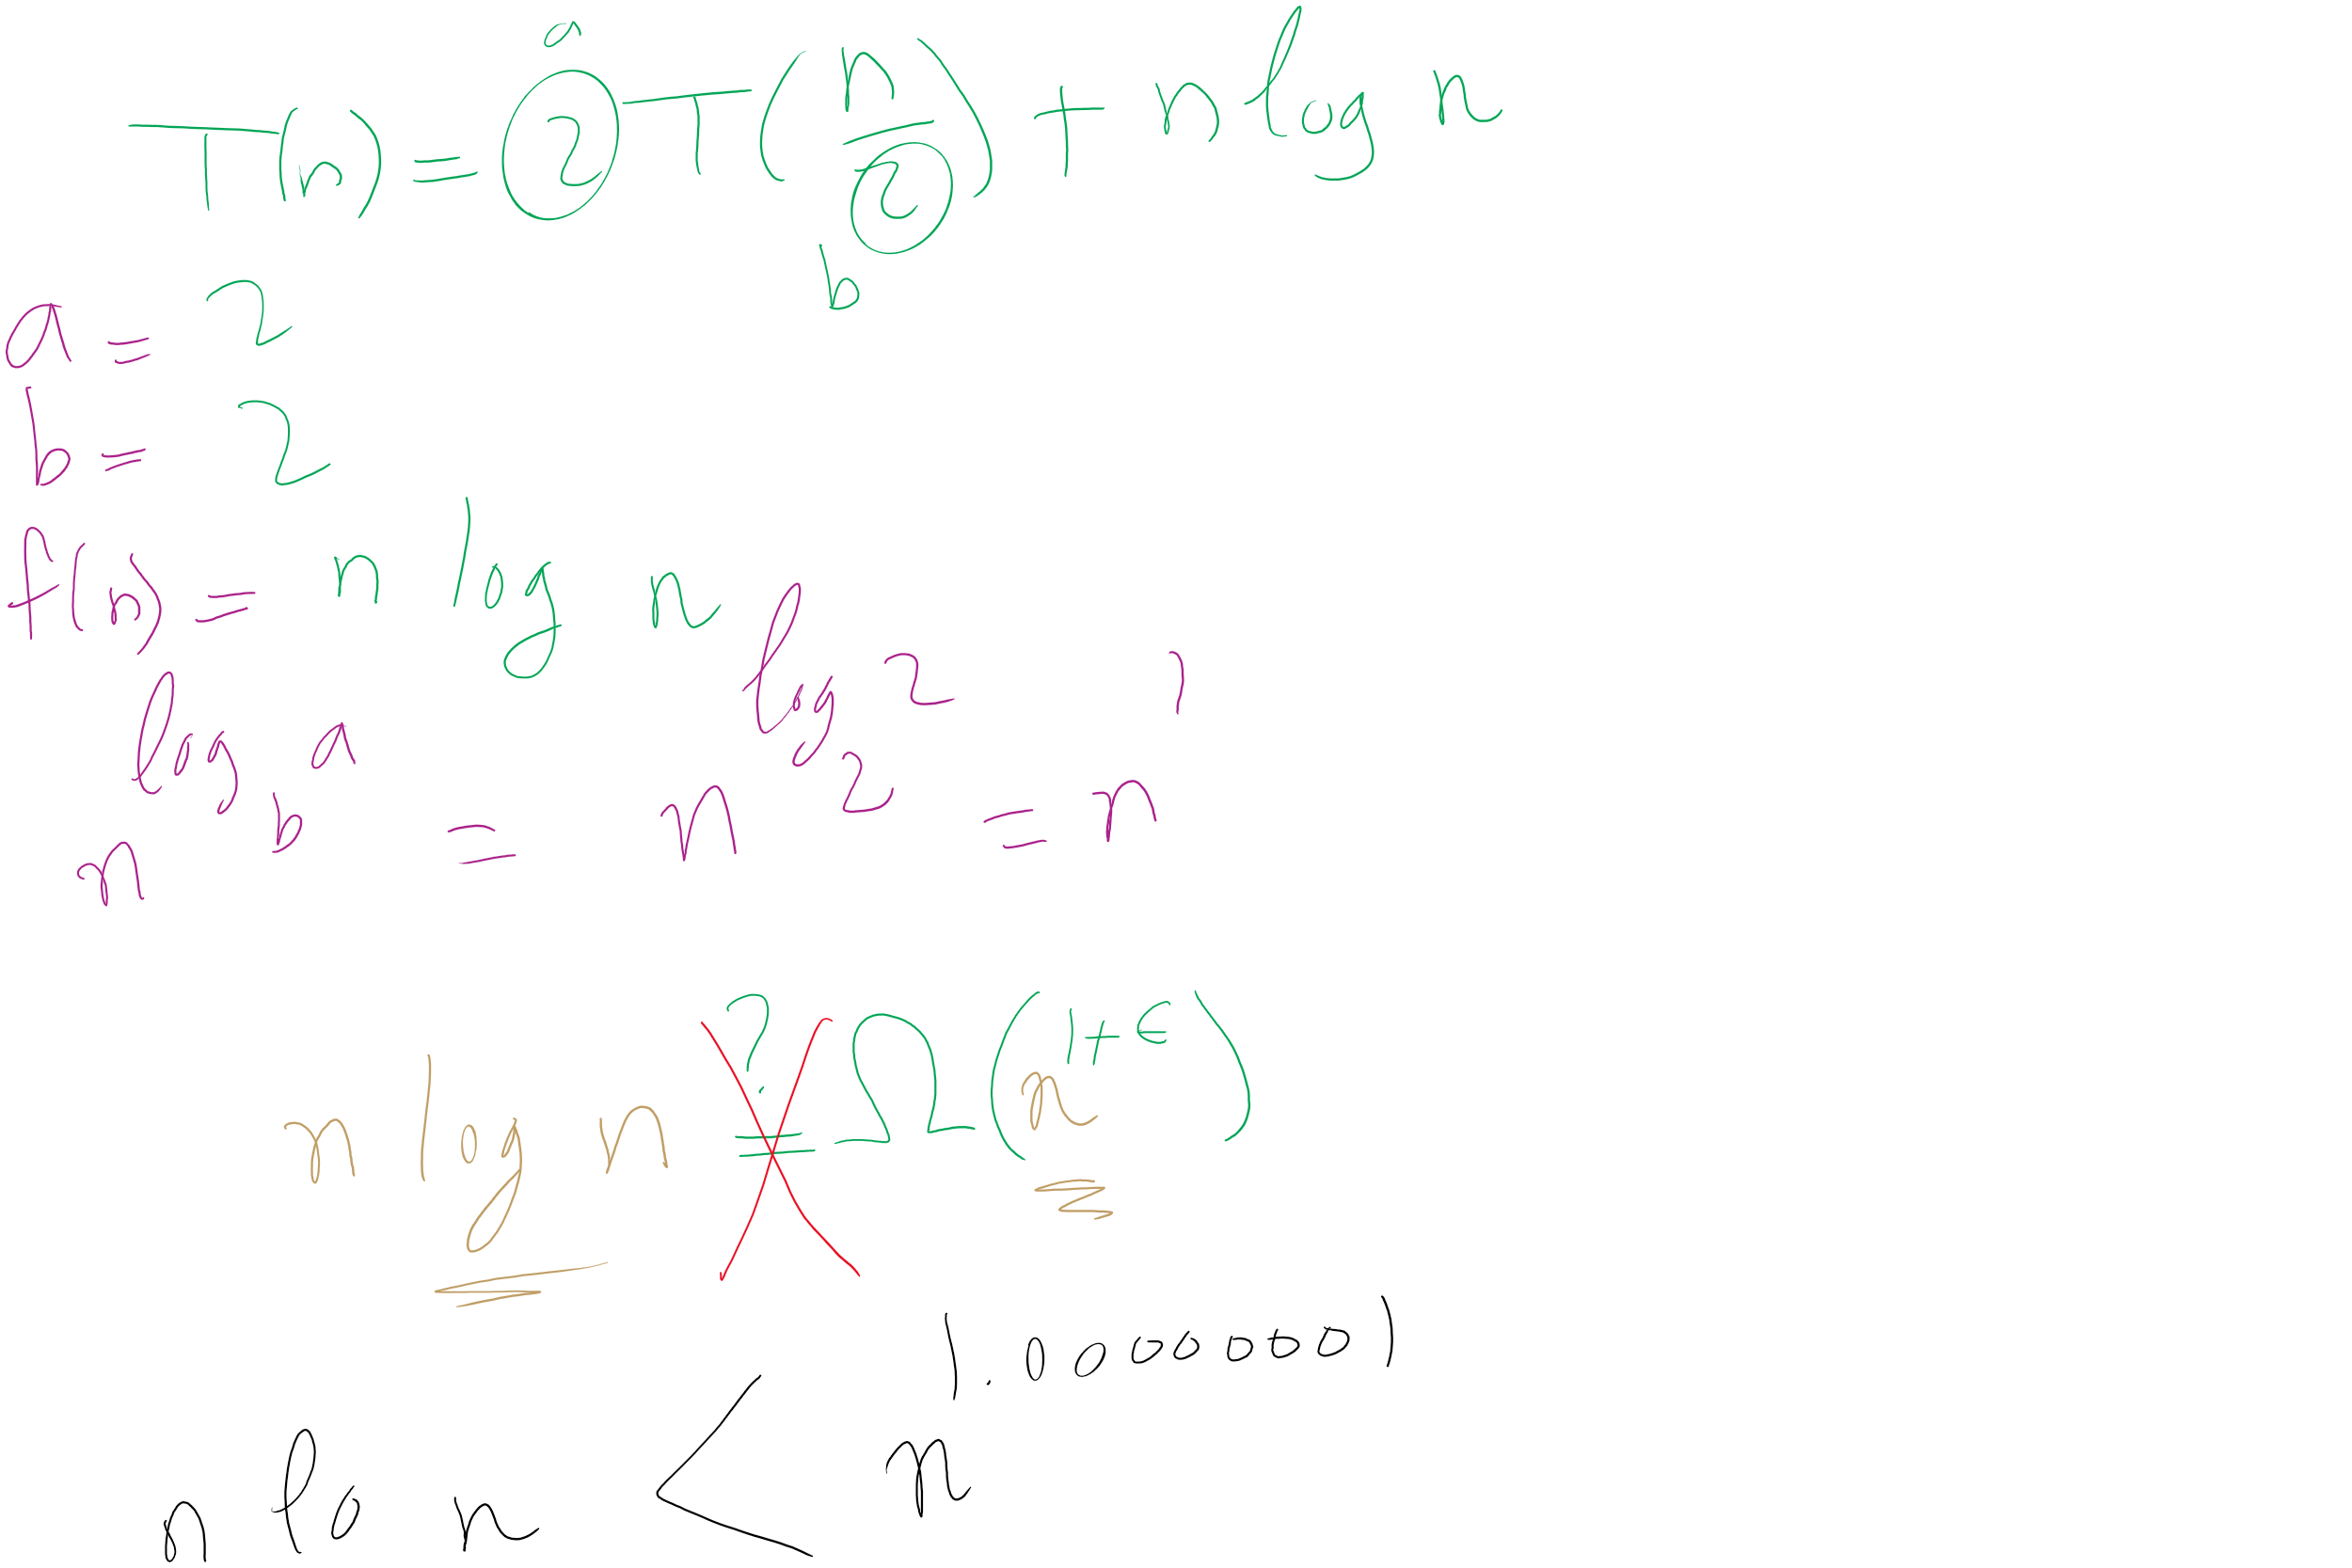 a
T(n) = 2 T(n/2) + n log n
b
a = 2
b = 2
f(n) = n log n
n^log_b a = n^log_2 2 = n^1
n log n ?= Ω(n^1+ϵ)
n lo n < n^1.00000001